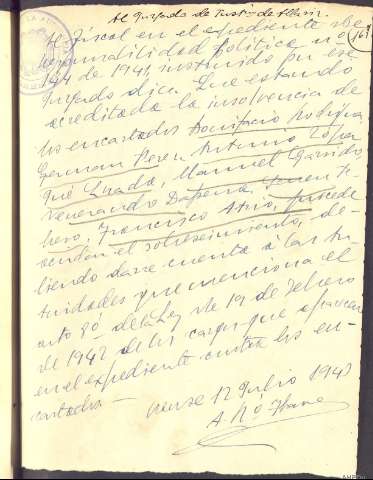 Al Juzgado de Instrn. de Allariz.
161
Al Fiscal en el expediente de res
ponsabilidad política nº
144 de 1941, instruido por ese
Juzgado dice: Que estando
acreditada la insolvencia de
los encartados Bonifacio Rodrigu
German Perez Antonio Lopez
José Quada, Manuel Garrido,
Venerando Dapena,
Francisco procede
acordar el sobreseimiento, de-
biendo darse cuenta a las Au
toridades que menciona el
arto 8º de la Ley de 19 de Febrero
de 1942 de los cargos que aparecen
en el expediente contra los en-
cartados.—
Orense 12 Julio 1943
A.